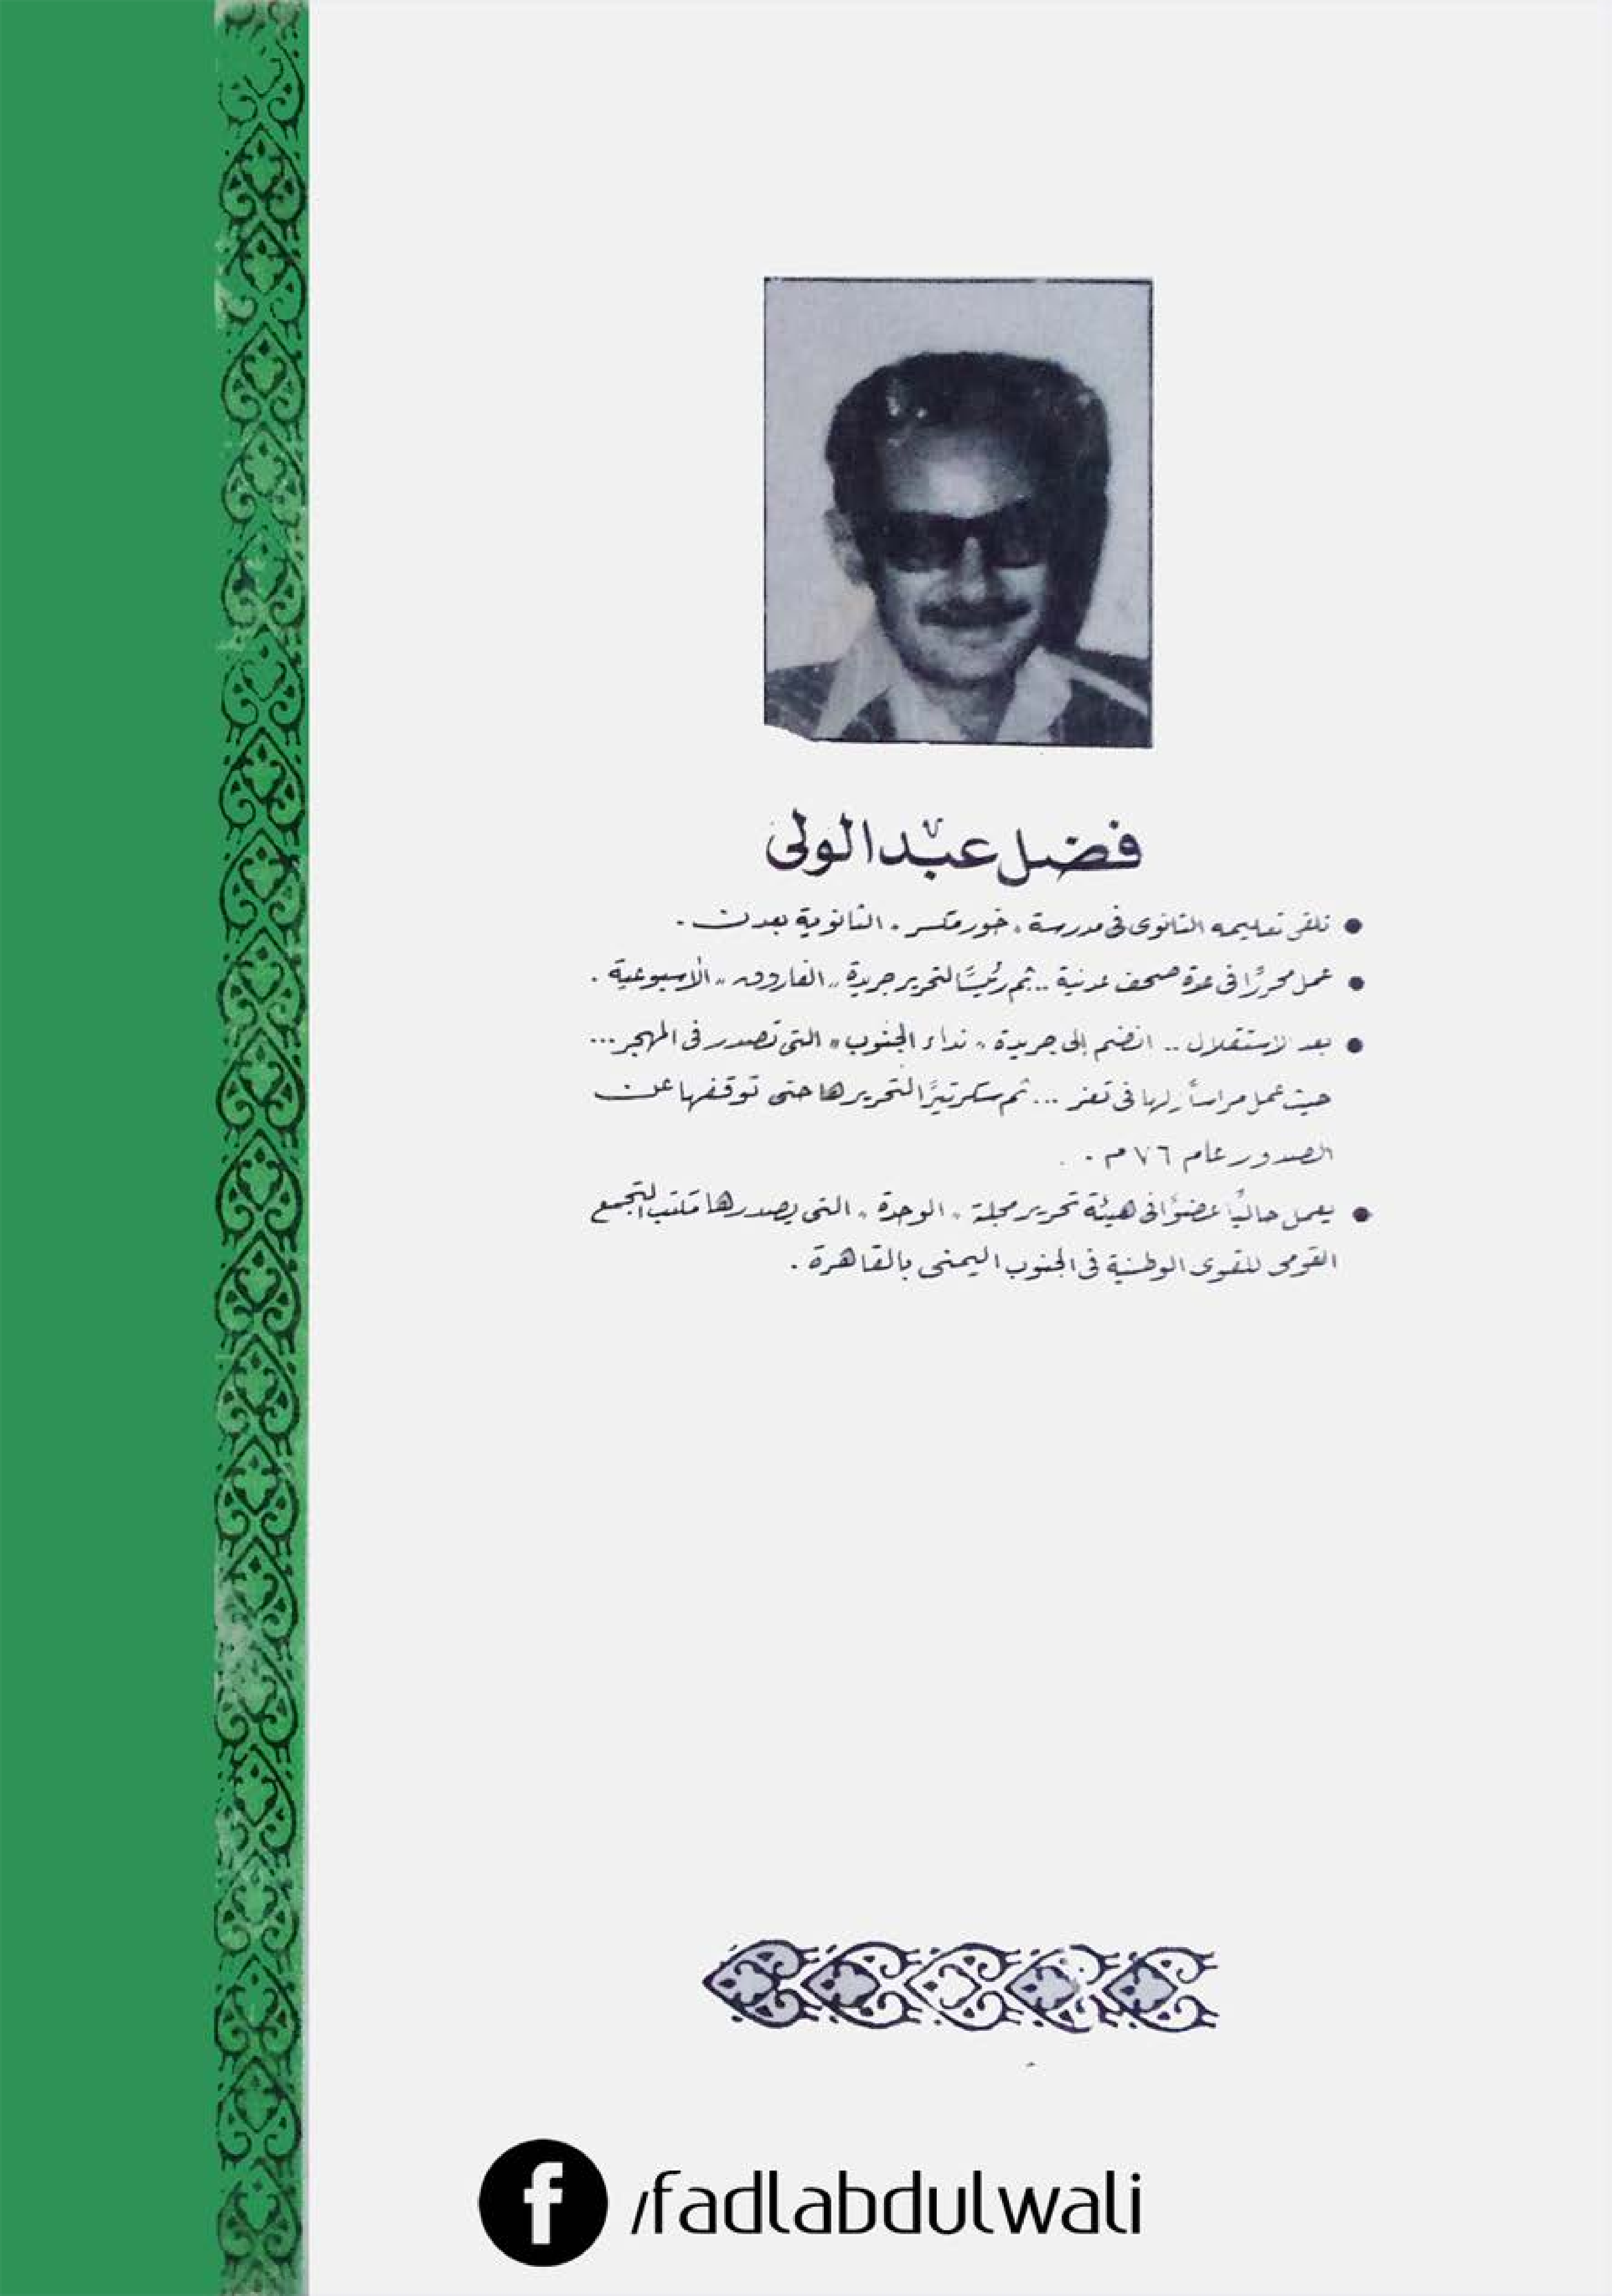 فضل عبد الولى
● تلقى تعليمه الثانوى فى مدرسة « خور مكسر » الثانوية بعدن .
● عمل محررًا فى عدة صحف عدنية .. ثم رئيسًا لتحرير جريدة « الفاروق » الأسبوعية .
● بعد الاستقلال .. انضم إلى جريدة « نداء الجنوب » التى تصدر فى المهجر ...
حيث عمل مراسلاً لها فى تعز ... ثم سكرتيرًا لتحريرها حتى توقفها عن
الصدور عام ٧٦ م .
● يعمل حاليًا عضوًا فى هيئة تحرير مجلة « الوحدة » التى يصدرها مكتب التجمع
القومى للقوى الوطنية فى الجنوب اليمنى بالقاهرة .
f /fadlabdulwali